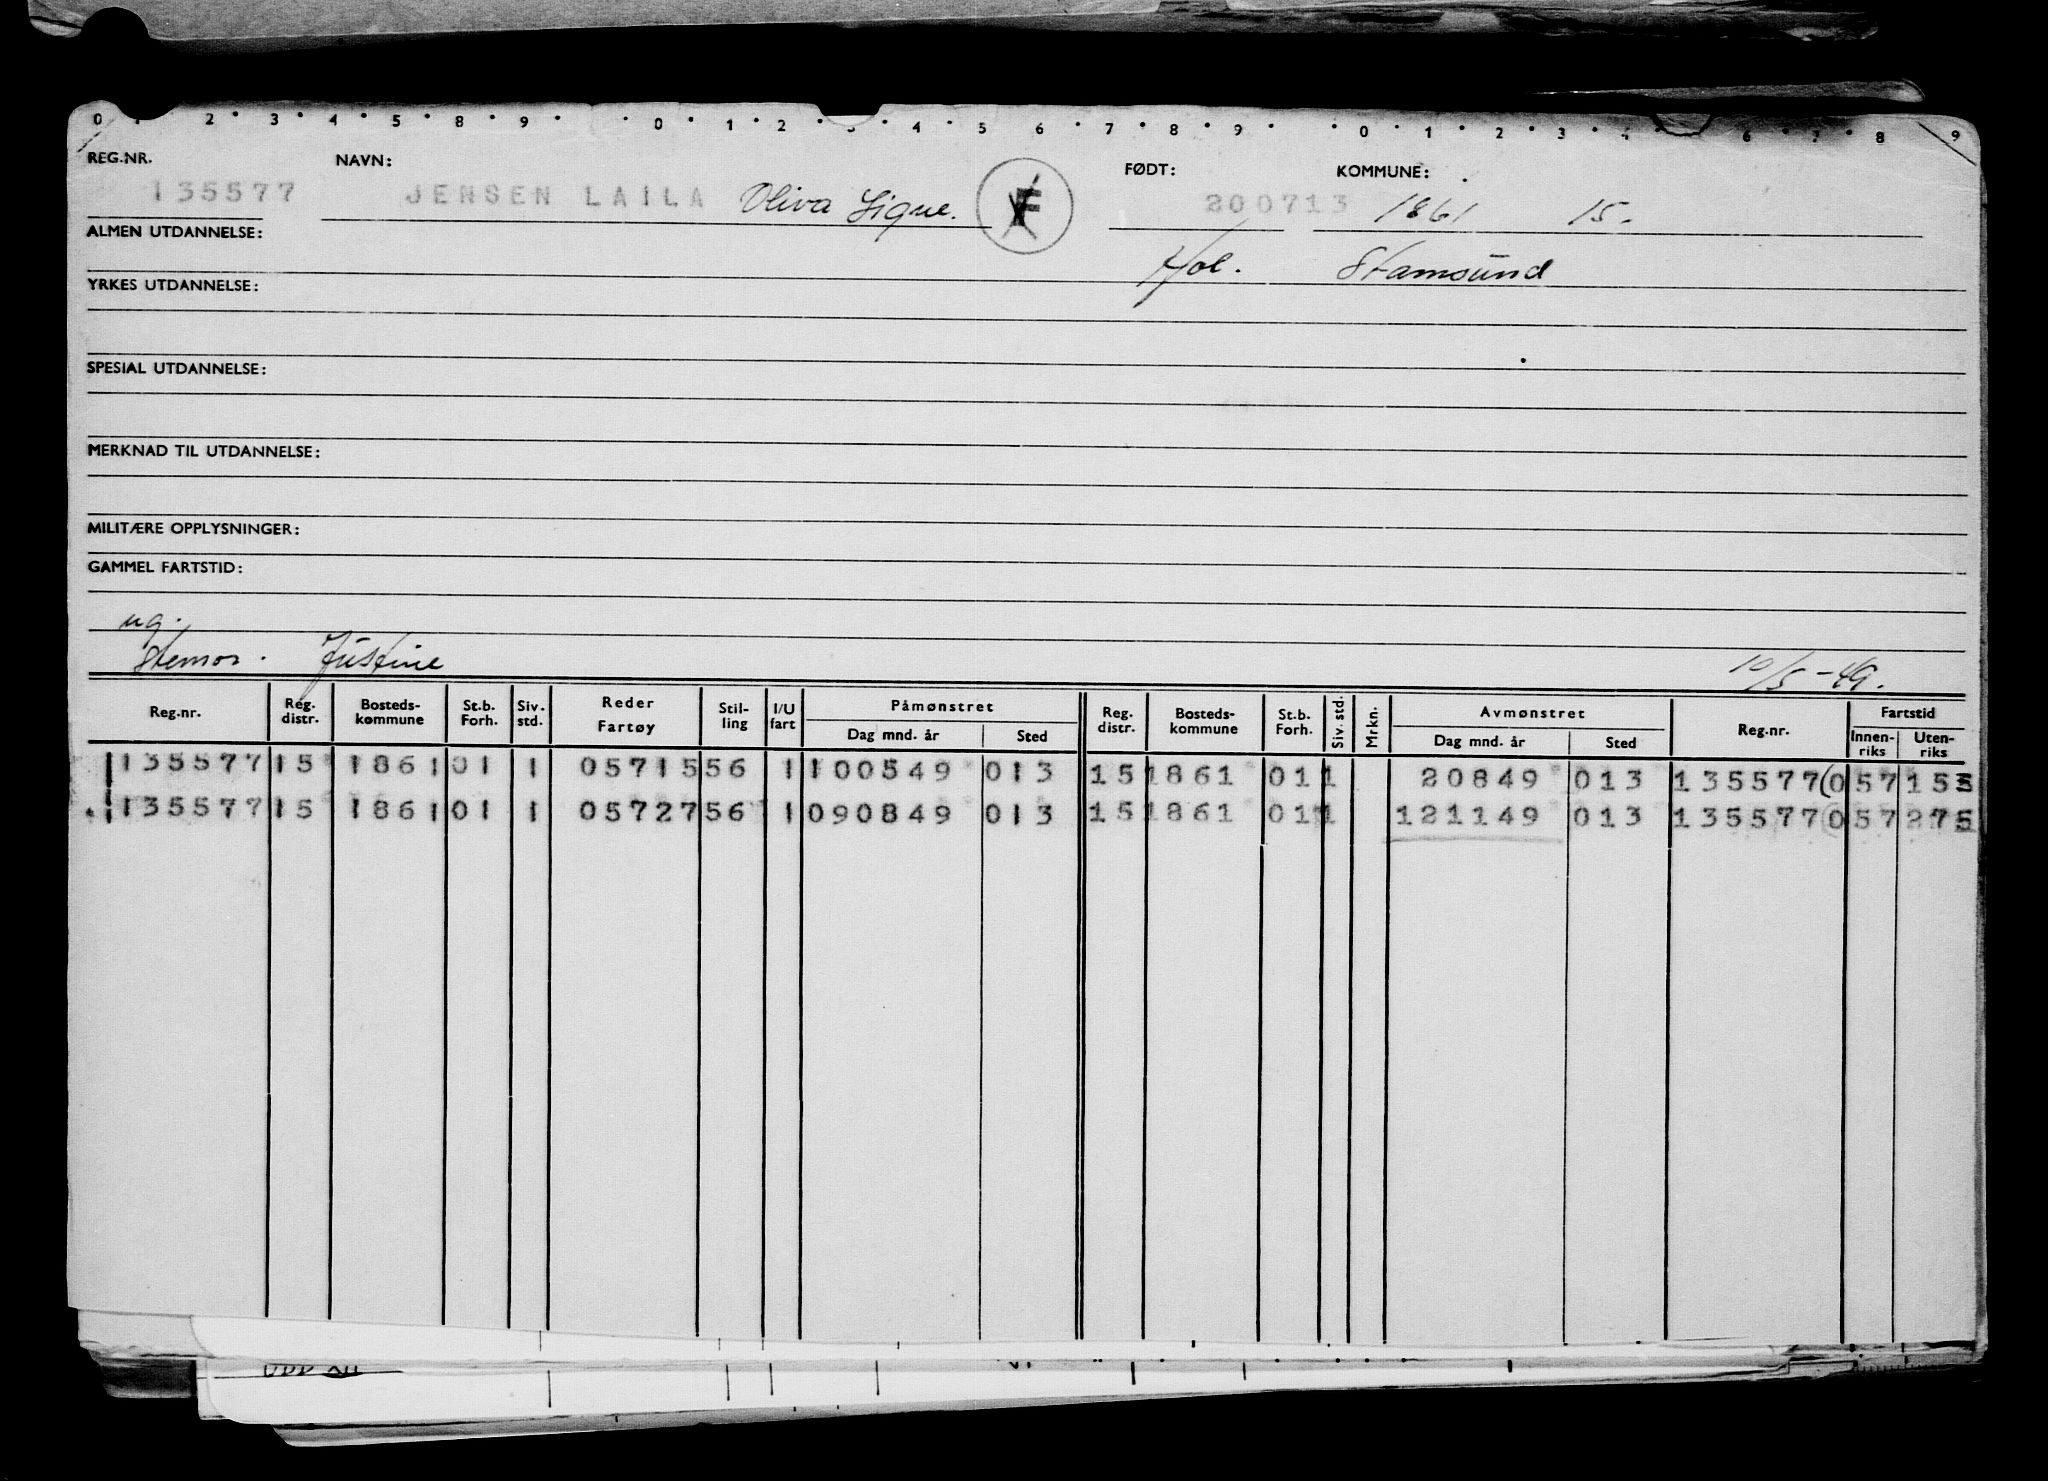 0 2 3 4 5 8 9 0 1 2 3 4 5 6 7 8 9 0 1 2 3 4 6 7 8 9
REG.NR. NAVN: FØDT: KOMMUNE:
135577 JENSEN LAILA Oliva Signe. F 200713 1861 15.
ALMEN UTDANNELSE:
Hol. Stamsund
YRKES UTDANNELSE:
SPESIAL UTDANNELSE:
MERKNAD TIL UTDANNELSE:
MILITÆRE OPPLYSNINGER:
GAMMEL FARTSTID:
ug.
Stemor. Justine 10/5-49.
Reg.nr. Reg. distr. Bosteds-kommune St.b. Forh. Siv. std. Reder Fartøy Stil-ling I/U fart Påmønstret Dag mnd. år Sted Reg. distr. Bosteds-kommune St.b. Forh. Siv. std. Mrkn. Avmønstret Dag mnd. år Sted Reg.nr. Fartstid Innen-riks Uten-riks
135577 15 1861 01 1 05715 56 1 100549 013 15 1861 01 1 20849 013 135577 (0 57 155
135577 15 1861 01 1 05727 56 1 090849 013 15 1861 01 1 121149 013 135577 (0 57 275